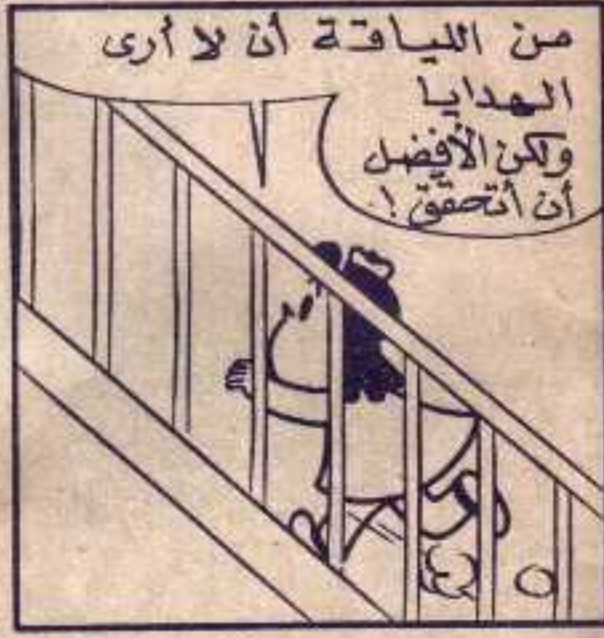 من اللياقة أن لا أرى
الهدايا
ولكن الأفضل
أن أتحقق !